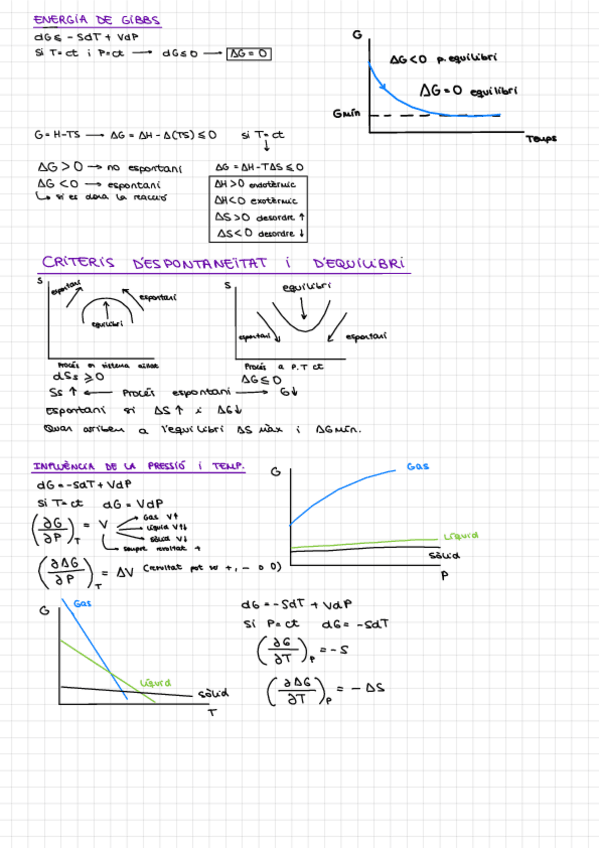 ENERGIA DE GIBBS
dG ≤ - SdT + VdP
Si T=ct i P=ct → dG≤0 → ΔG = 0
G
ΔG<0 p. equilibri
ΔG=0 equilibri
Gmín
Temps
G = H-TS → ΔG = ΔH - Δ(TS) ≤ 0 si T=ct
ΔG > 0 → no espontani
ΔG < 0 → espontani
↳ si es dona la reacció
ΔG = ΔH-TΔS ≤ 0
ΔH>0 endotèrmic
ΔH<0 exotèrmic
ΔS>0 desordre ↑
ΔS<0 desordre ↓
CRITERIS D'ESPONTANEÏTAT i D'EQUILIBRI
S
espontani
espontani
equilibri
Procés en sistema aïllat
dSs ≥ 0
S
equilibri
espontani
espontani
Procés a P, T ct
ΔG ≤ 0
Ss ↑ ← Procés espontani → G↓
Espontani si ΔS↑ i ΔG↓
Quan arribem a l'equilibri ΔS màx i ΔGmín.
INFLUÈNCIA DE LA PRESSIÓ i TEMP.
dG = -SdT + VdP
Si T=ct dG = VdP
(∂G/∂P)T = V
Gas V↑
Líquid V↑↓
Sòlid V↓
sempre resultat +
(∂ΔG/∂P)T = ΔV (resultat pot ser +, - o 0)
G
Gas
Líquid
Sòlid
P
G
Gas
Líquid
Sòlid
T
dG = -SdT + VdP
Si P=ct dG = -SdT
(∂G/∂T)P = -S
(∂ΔG/∂T)P = - ΔS